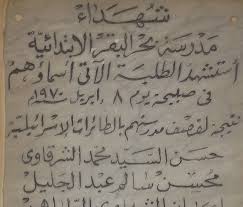 شهداء
مدرسة بحر البقر الابتدائية
أستشهد الطلبة الآتى أسماؤهم
فى صبيحة يوم ٨ ابريل ١٩٧٠
نتيجة لقصف مدرستهم بالطائرات الاسرائيلية
حسن السيد محمد الشرقاوى
محسن سالم عبد الجليل